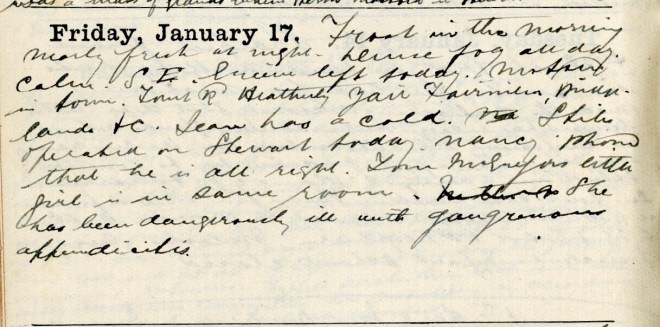 Friday, January 17. Frost in the morning
nearly fresh at night. Dense fog all day.
Calm. S.E. Greene left today. Motored
in town. Took R Heatherly Fairview, Bridge-
lands &C. Jean has a cold.
operated on Stewart today. Nancy phoned
that he is all right. Tom McGregors little
girl is in same room. She
has been dangerously ill with gangrenous
appendicitis.